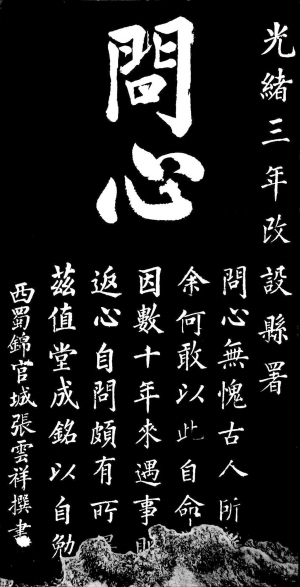 光緒三年改設縣署
問心
問心無愧古人所
余何敢以此自命
因數十年來遇事
返心自問頗有所
茲值堂成銘以自勉
西蜀錦官城張雲祥撰書